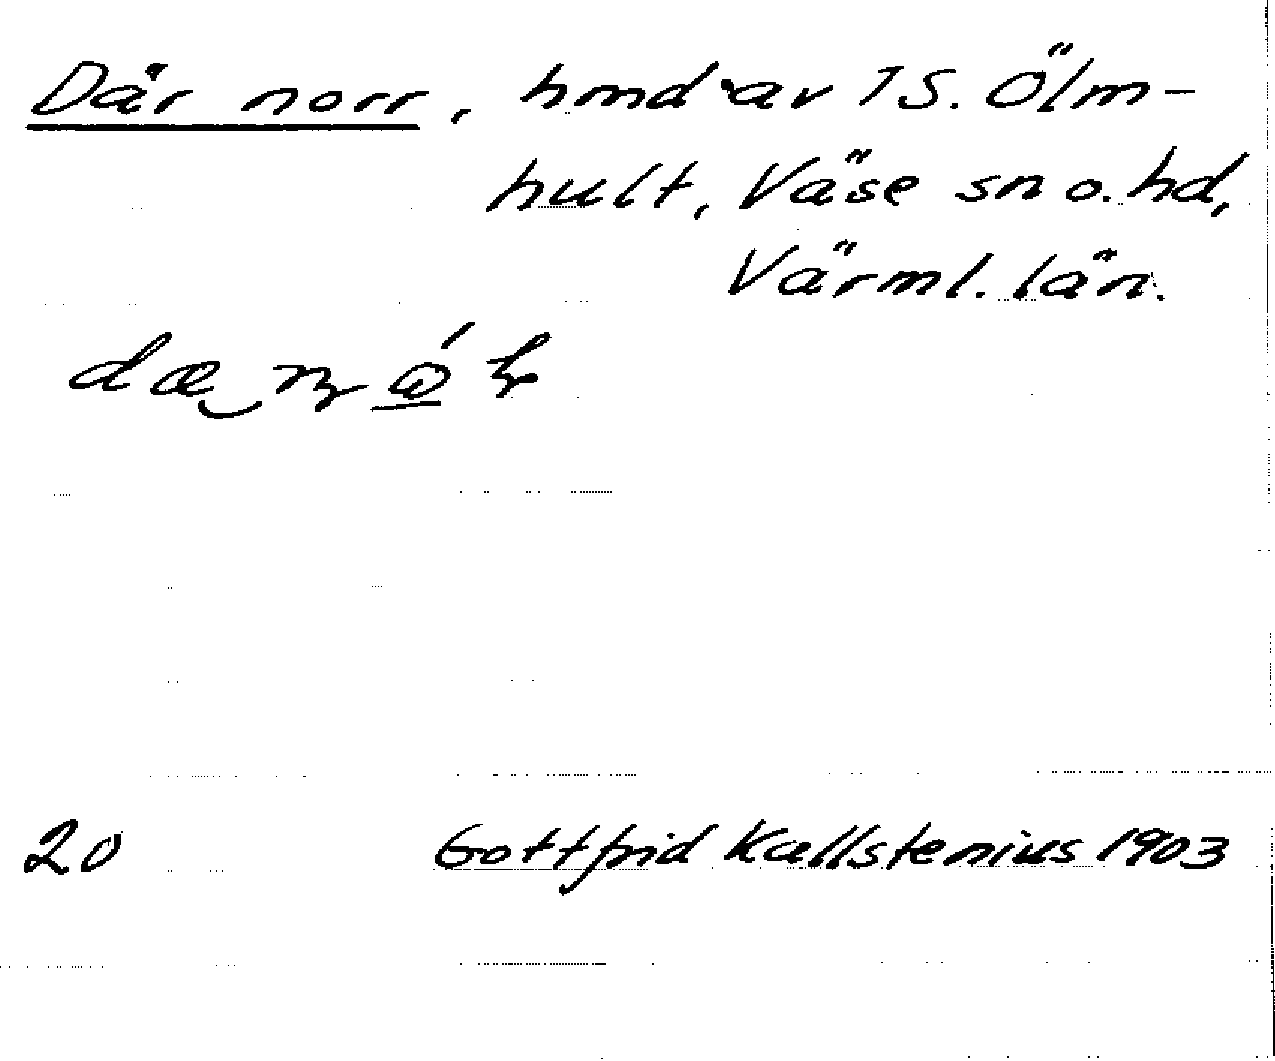 Där norr, hmd av 1 S. Ölm-
hult, Väse sn o. hd,
Värml. län.
20 Gottfrid Kallstenius 1903